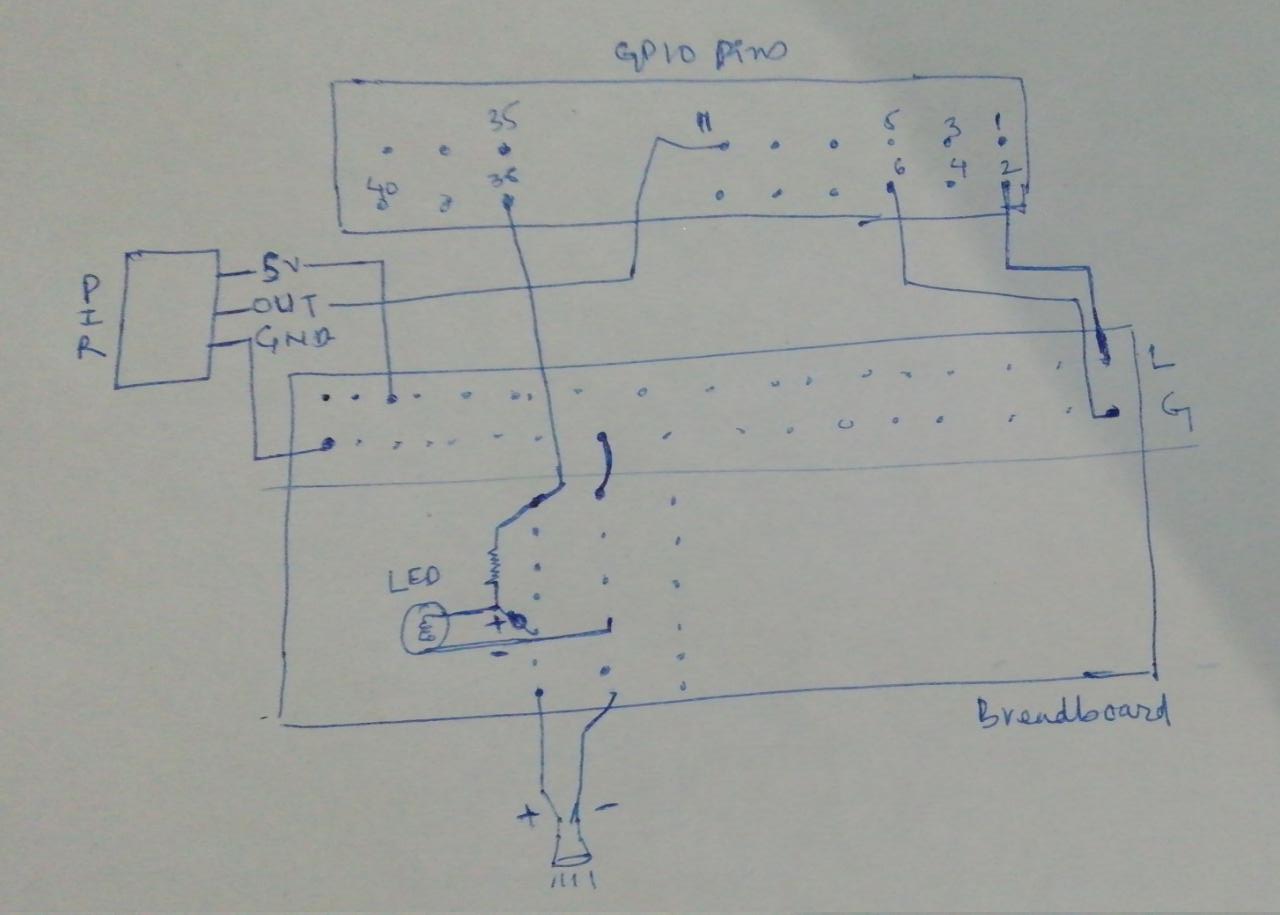 GPIO Pins
35
11
5
3
1
40
36
6
4
2
PIR
5V
OUT
GND
L
G
LED
+
-
Breadboard
+
-